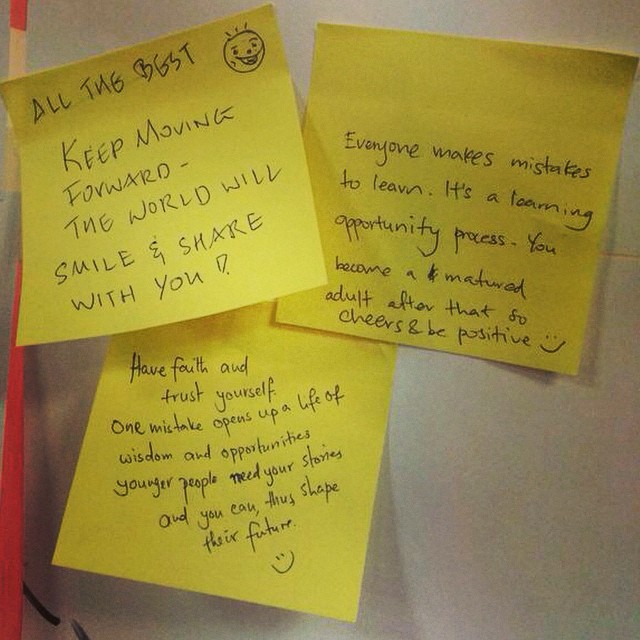 ALL THE BEST
KEEP MOVING
FORWARD -
THE WORLD WILL
SMILE & SHARE
WITH YOU !!
Everyone makes mistakes
to learn. It's a learning
opportunity process. You
become a matured
adult after that so
cheers & be positive
Have faith and
trust yourself.
One mistake opens up a life of
wisdom and opportunities
younger people need your stories
and you can, thus, shape
their future.